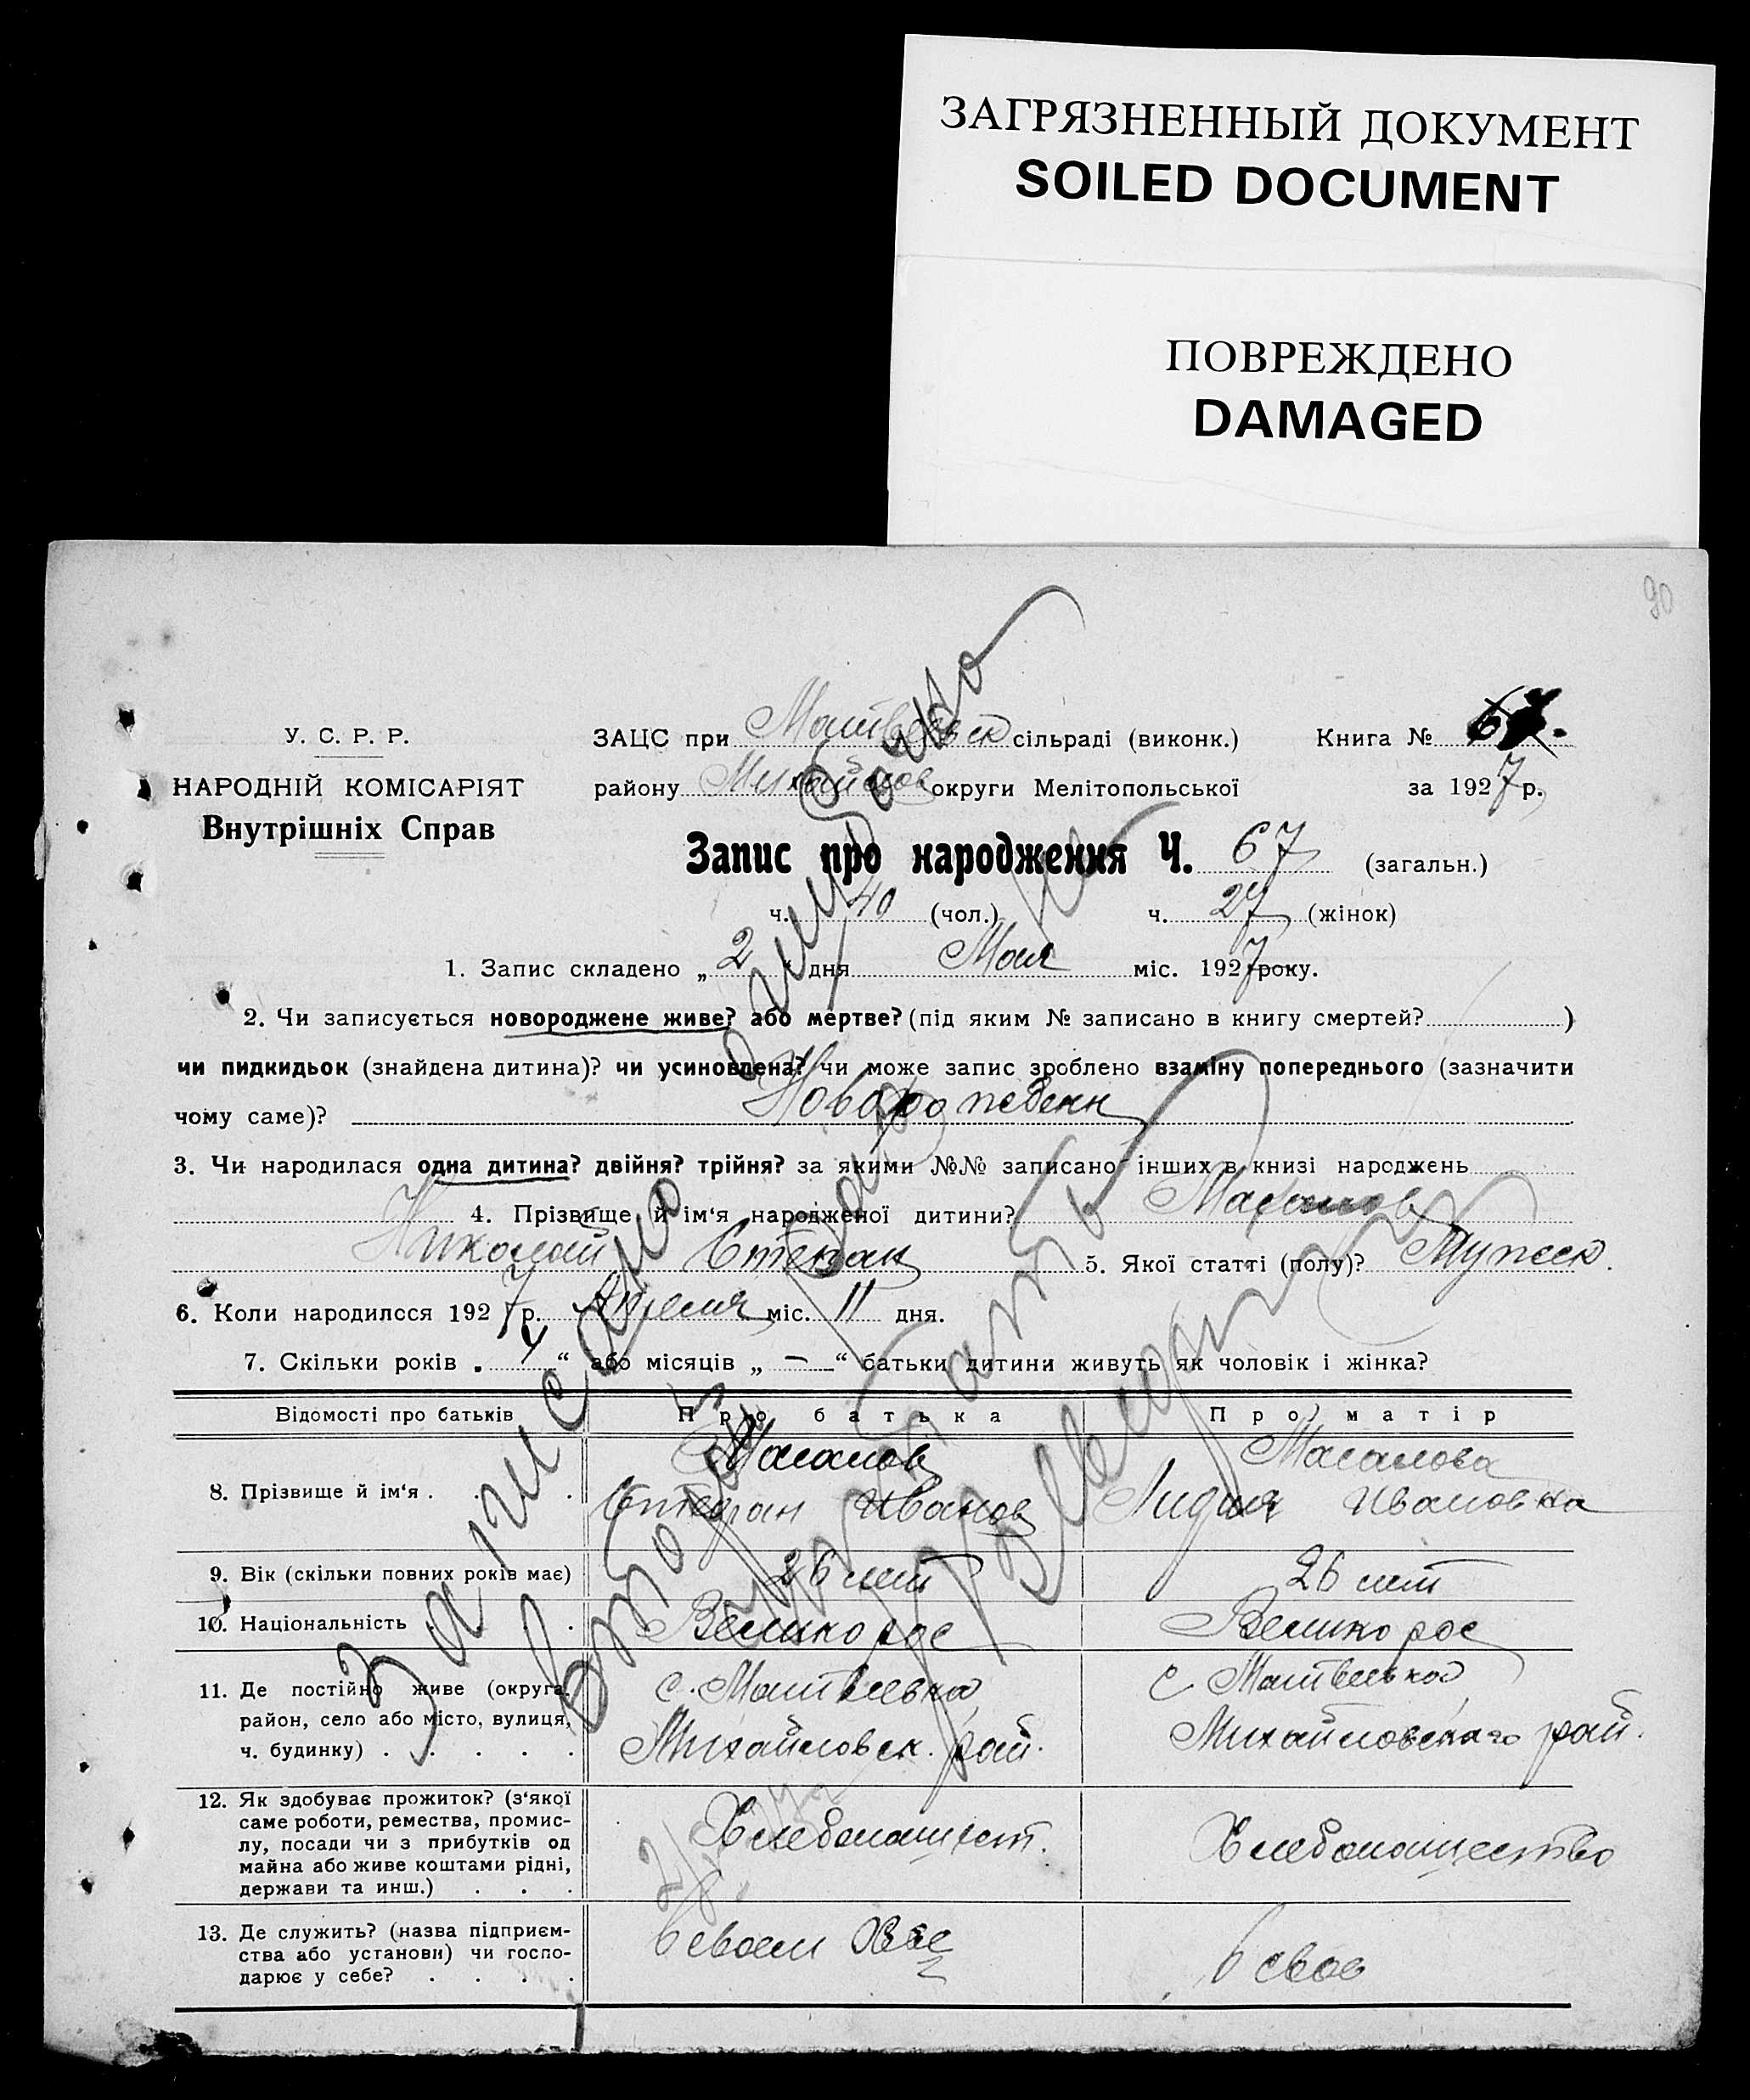 ЗАГРЯЗНЕННЫЙ ДОКУМЕНТ
SOILED DOCUMENT
ПОВРЕЖДЕНО
DAMAGED
90
У. С. Р. Р.
НАРОДНІЙ КОМІСАРІЯТ
Внутрішніх Справ
ЗАЦС при Матвеевск сільраді (виконк.) Книга №
району Михайлов округи Мелітопольської за 1927 р.
Запис про народження Ч. 67 (загальн.)
ч. 40 (чол.) ч. 27 (жінок)
1. Запис складено „2“ дня Мая міс. 1927 року.
2. Чи записується новороджене живе? або мертве? (під яким № записано в книгу смертей? )
чи пидкидьок (знайдена дитина)? чи усиновлена? чи може запис зроблено взаміну попереднього (зазначити
чому саме)?Ново
3. Чи народилася одна дитина? двійня? трійня? за якими №№ записано інших в книзі народжень
4. Прізвище й ім‘я народженої дитини?
Николай Степан 5. Якої статті (полу)? Мужск.
6. Коли народилося 1927 р. Апреля міс. 11 дня.
7. Скільки років „4“ або місяців „—“ батьки дитини живуть як чоловік і жінка?
Відомості про батьків Про батька Про матір
8. Прізвище й ім‘я . . . . Масалов Масалова
Степан Иванов Лидия Ивановна
9. Вік (скільки повних років має) 26 лет 26 лет
10. Національність . . . . Великорос Великорос
11. Де постійно живе (округа, с. Матвеевка с Матвеевка
район, село або місто, вулиця,
ч. будинку) . . . . . Михайловск. рай. Михайловскаго рай.
12. Як здобуває прожиток? (з‘якої
саме роботи, ремества, промис-
лу, посади чи з прибутків од
майна або живе коштами рідні,
держави та инш.) . . . Хлебопашест. Хлебопашество
13. Де служить? (назва підприєм-
ства або установи) чи госпо-
дарює у себе? . . . . В своем В свое
Записано